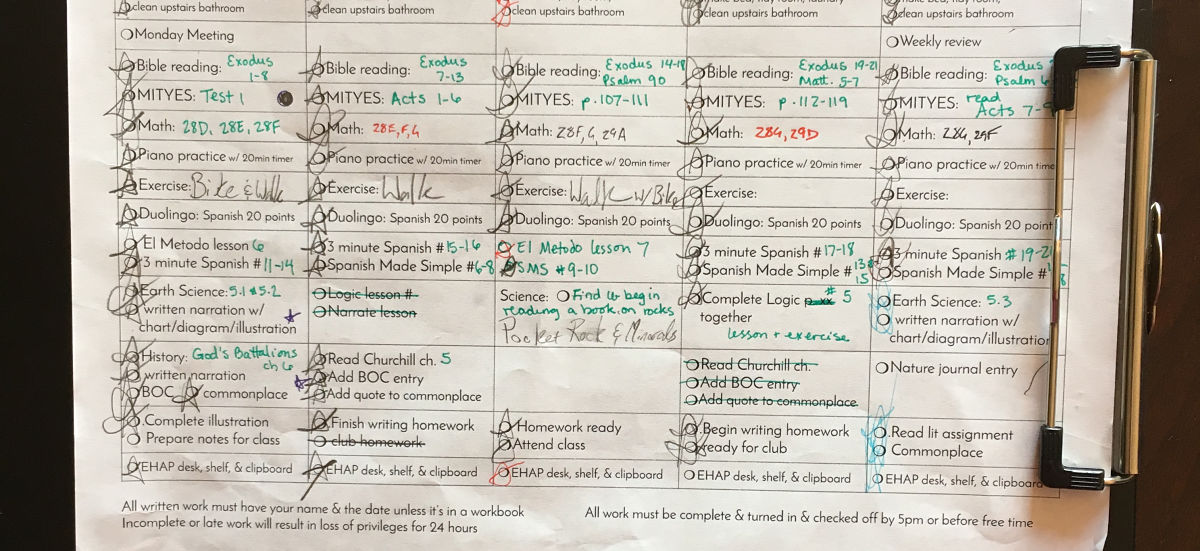 clean upstairs bathroom
clean upstairs bathroom
clean upstairs bathroom
clean upstairs bathroom
clean upstairs bathroom
Monday Meeting
Weekly review
Bible reading: Exodus
1-8
Bible reading: Exodus
7-13
Bible reading: Exodus 14-18
Psalm 90
Bible reading: Exodus 19-21
Matt. 5-7
Bible reading: Exodus
Psalm
MITYES: Test 1
MITYES: Acts 1-6
MITYES: p. 107-111
MITYES: p. 112-119
MITYES: read
Acts 7-
Math: 28D, 28E, 28F
Math: 28E, F, G
Math: 28F, G, 29A
Math: 28G, 29D
Math: 28G, 29F
Piano practice w/ 20min timer
Piano practice w/ 20min timer
Piano practice w/ 20min timer
Piano practice w/ 20min timer
Piano practice w/ 20min time
Exercise: Bike & Walk
Exercise: Walk
Exercise: Walk w/ Bike
Exercise:
Exercise:
Duolingo: Spanish 20 points
Duolingo: Spanish 20 points
Duolingo: Spanish 20 points
Duolingo: Spanish 20 points
Duolingo: Spanish 20 point
El Metodo lesson 6
3 minute Spanish # 11-14
3 minute Spanish # 15-16
Spanish Made Simple # 6-8
El Metodo lesson 7
SMS # 9-10
3 minute Spanish # 17-18
Spanish Made Simple # 13
15
3 minute Spanish # 19-21
Spanish Made Simple #
Earth Science: 5.1 & 5.2
written narration w/
chart/diagram/illustration
Logic lesson #
Narrate lesson
Science: Find & begin
reading a book on rocks
Pocket Rock & Minerals
Complete Logic # 5
together
lesson + exercise
Earth Science: 5.3
written narration w/
chart/diagram/illustration
History: God's Battalions
ch 6
written narration
BOC commonplace
Read Churchill ch. 5
Add BOC entry
Add quote to commonplace
Read Churchill ch.
Add BOC entry
Add quote to commonplace
Nature journal entry
Complete illustration
Prepare notes for class
Finish writing homework
club homework
Homework ready
Attend class
Begin writing homework
ready for club
Read lit assignment
Commonplace
EHAP desk, shelf, & clipboard
EHAP desk, shelf, & clipboard
EHAP desk, shelf, & clipboard
EHAP desk, shelf, & clipboard
EHAP desk, shelf, & clipboard
All written work must have your name & the date unless it's in a workbook
Incomplete or late work will result in loss of privileges for 24 hours
All work must be complete & turned in & checked off by 5pm or before free time